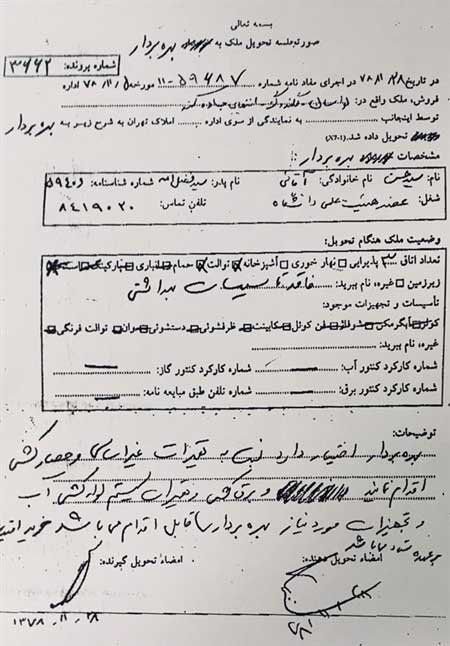 بسمه تعالی
صورتجلسه تحویل ملک به بهره بردار
شماره پرونده: ۳۶۶۲
در تاریخ ۷۸/۱۱/۲۸ در اجرای مفاد نامه شماره ۵۹۶۸۷-۱۱ مورخه ۷۸/۱۱/ اداره
فروش، ملک واقع در: لواسان - گلندوئک - انتهای جاده
توسط اینجانب به نمایندگی از سوی اداره املاک تهران به شرح زیر به بهره بردار
تحویل داده شد.
مشخصات بهره بردار:
نام: سید نام خانوادگی: آقائی نام پدر: سید فضل اله شماره شناسنامه: ۵۹۴۰۶
شغل: عضو هیئت علمی دانشگاه تلفن تماس: ۸۴۱۹۰۲۰
وضعیت ملک هنگام تحویل:
تعداد اتاق پذیرایی نهار خوری آشپزخانه توالت حمام انباری پارکینگ
زیرزمین غیره نام ببرید: فاقد تاسیسات بهداشتی
تأسیسات و تجهیزات موجود:
کولر آبگرمکن شوفاژ فن کوئل کابینت ظرفشوئی دستشوئی وان توالت فرنگی
غیره، نام ببرید:
شماره کارکرد کنتور آب: شماره کارکرد کنتور گاز:
شماره کارکرد کنتور برق: شماره تلفن طبق مبایعه نامه:
توضیحات:
بهره بردار اختیار دارد نسبت به تعمیرات غیر اساسی و حصارکشی
اقدام نماید و برق کشی و تعمیرات سیستم لوله کشی آب
و تجهیزات مورد نیاز بهره بردار قابل اقدام میباشد
بعهده ستاد میباشد
امضاء تحویل دهنده: امضاء تحویل گیرنده:
۷۸/۱۱/
۱۳۷۸/۱۱/۲۸